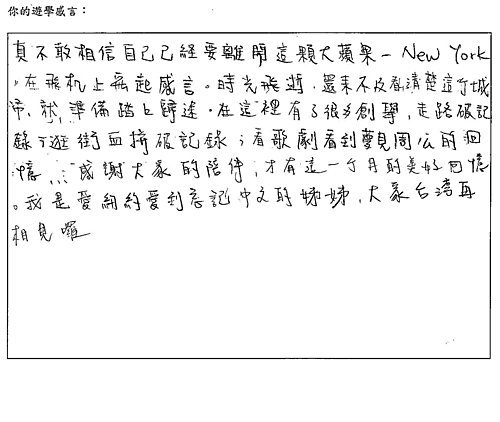 你的遊學感言：
真不敢相信自己已經要離開這顆大蘋果－New York
，在飛机上寫起感言。時光飛逝，還來不及看清楚這个城
市，就準備踏上歸途。在這裡有了很多創舉，走路破記
錄，逛街血拚破記錄；看歌劇看到夢見周公的回
憶…；感謝大家的陪伴，才有這一个月的美好回憶
。我是愛紐約愛到忘記中文的姊姊，大家台灣再
相見囉